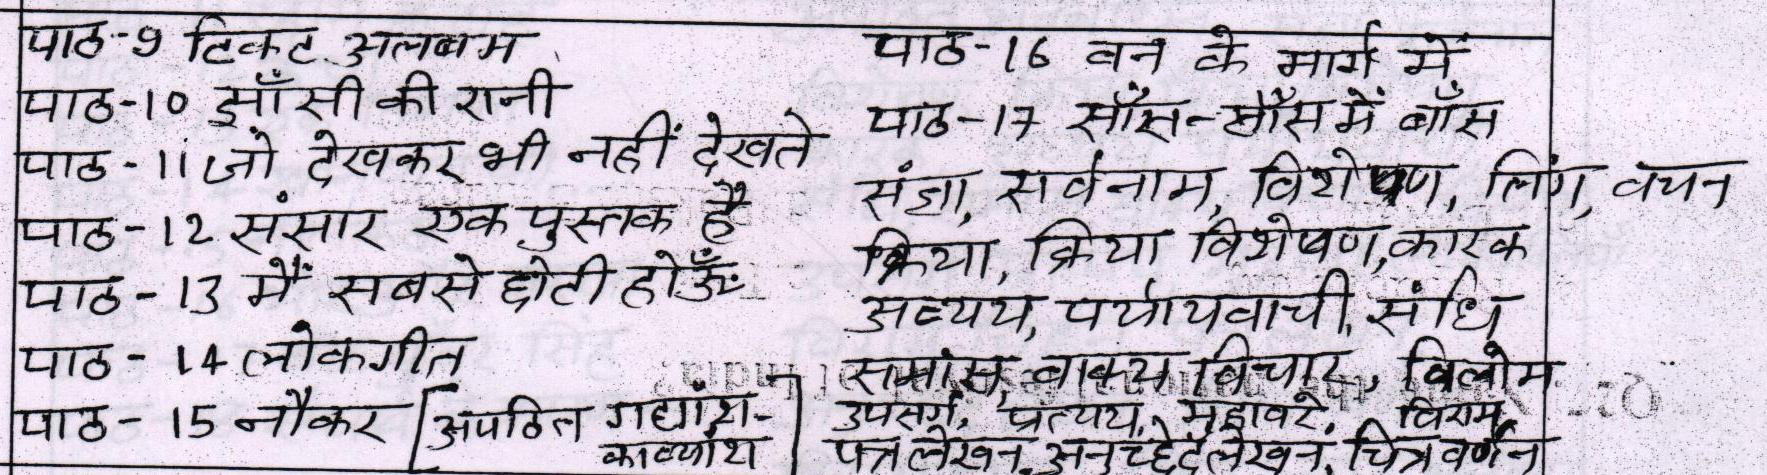 पाठ-9 टिकट अलबम
पाठ-10 झाँसी की रानी
पाठ-11 जो देखकर भी नहीं देखते
पाठ-12 संसार एक पुस्तक है
पाठ-13 मैं सबसे छोटी होऊँ
पाठ-14 लोकगीत
पाठ-15 नौकर [अपठित गद्यांश-
काव्यांश]
पाठ-16 वन के मार्ग में
पाठ-17 साँस-साँस में बाँस
संज्ञा, सर्वनाम, विशेषण, लिंग, वचन
क्रिया, क्रिया विशेषण, कारक
अव्यय, पर्यायवाची, संधि
समास, वाक्य विचार, विलोम
उपसर्ग, प्रत्यय, मुहावरे, विराम
पत्र लेखन, अनुच्छेद लेखन, चित्र वर्णन